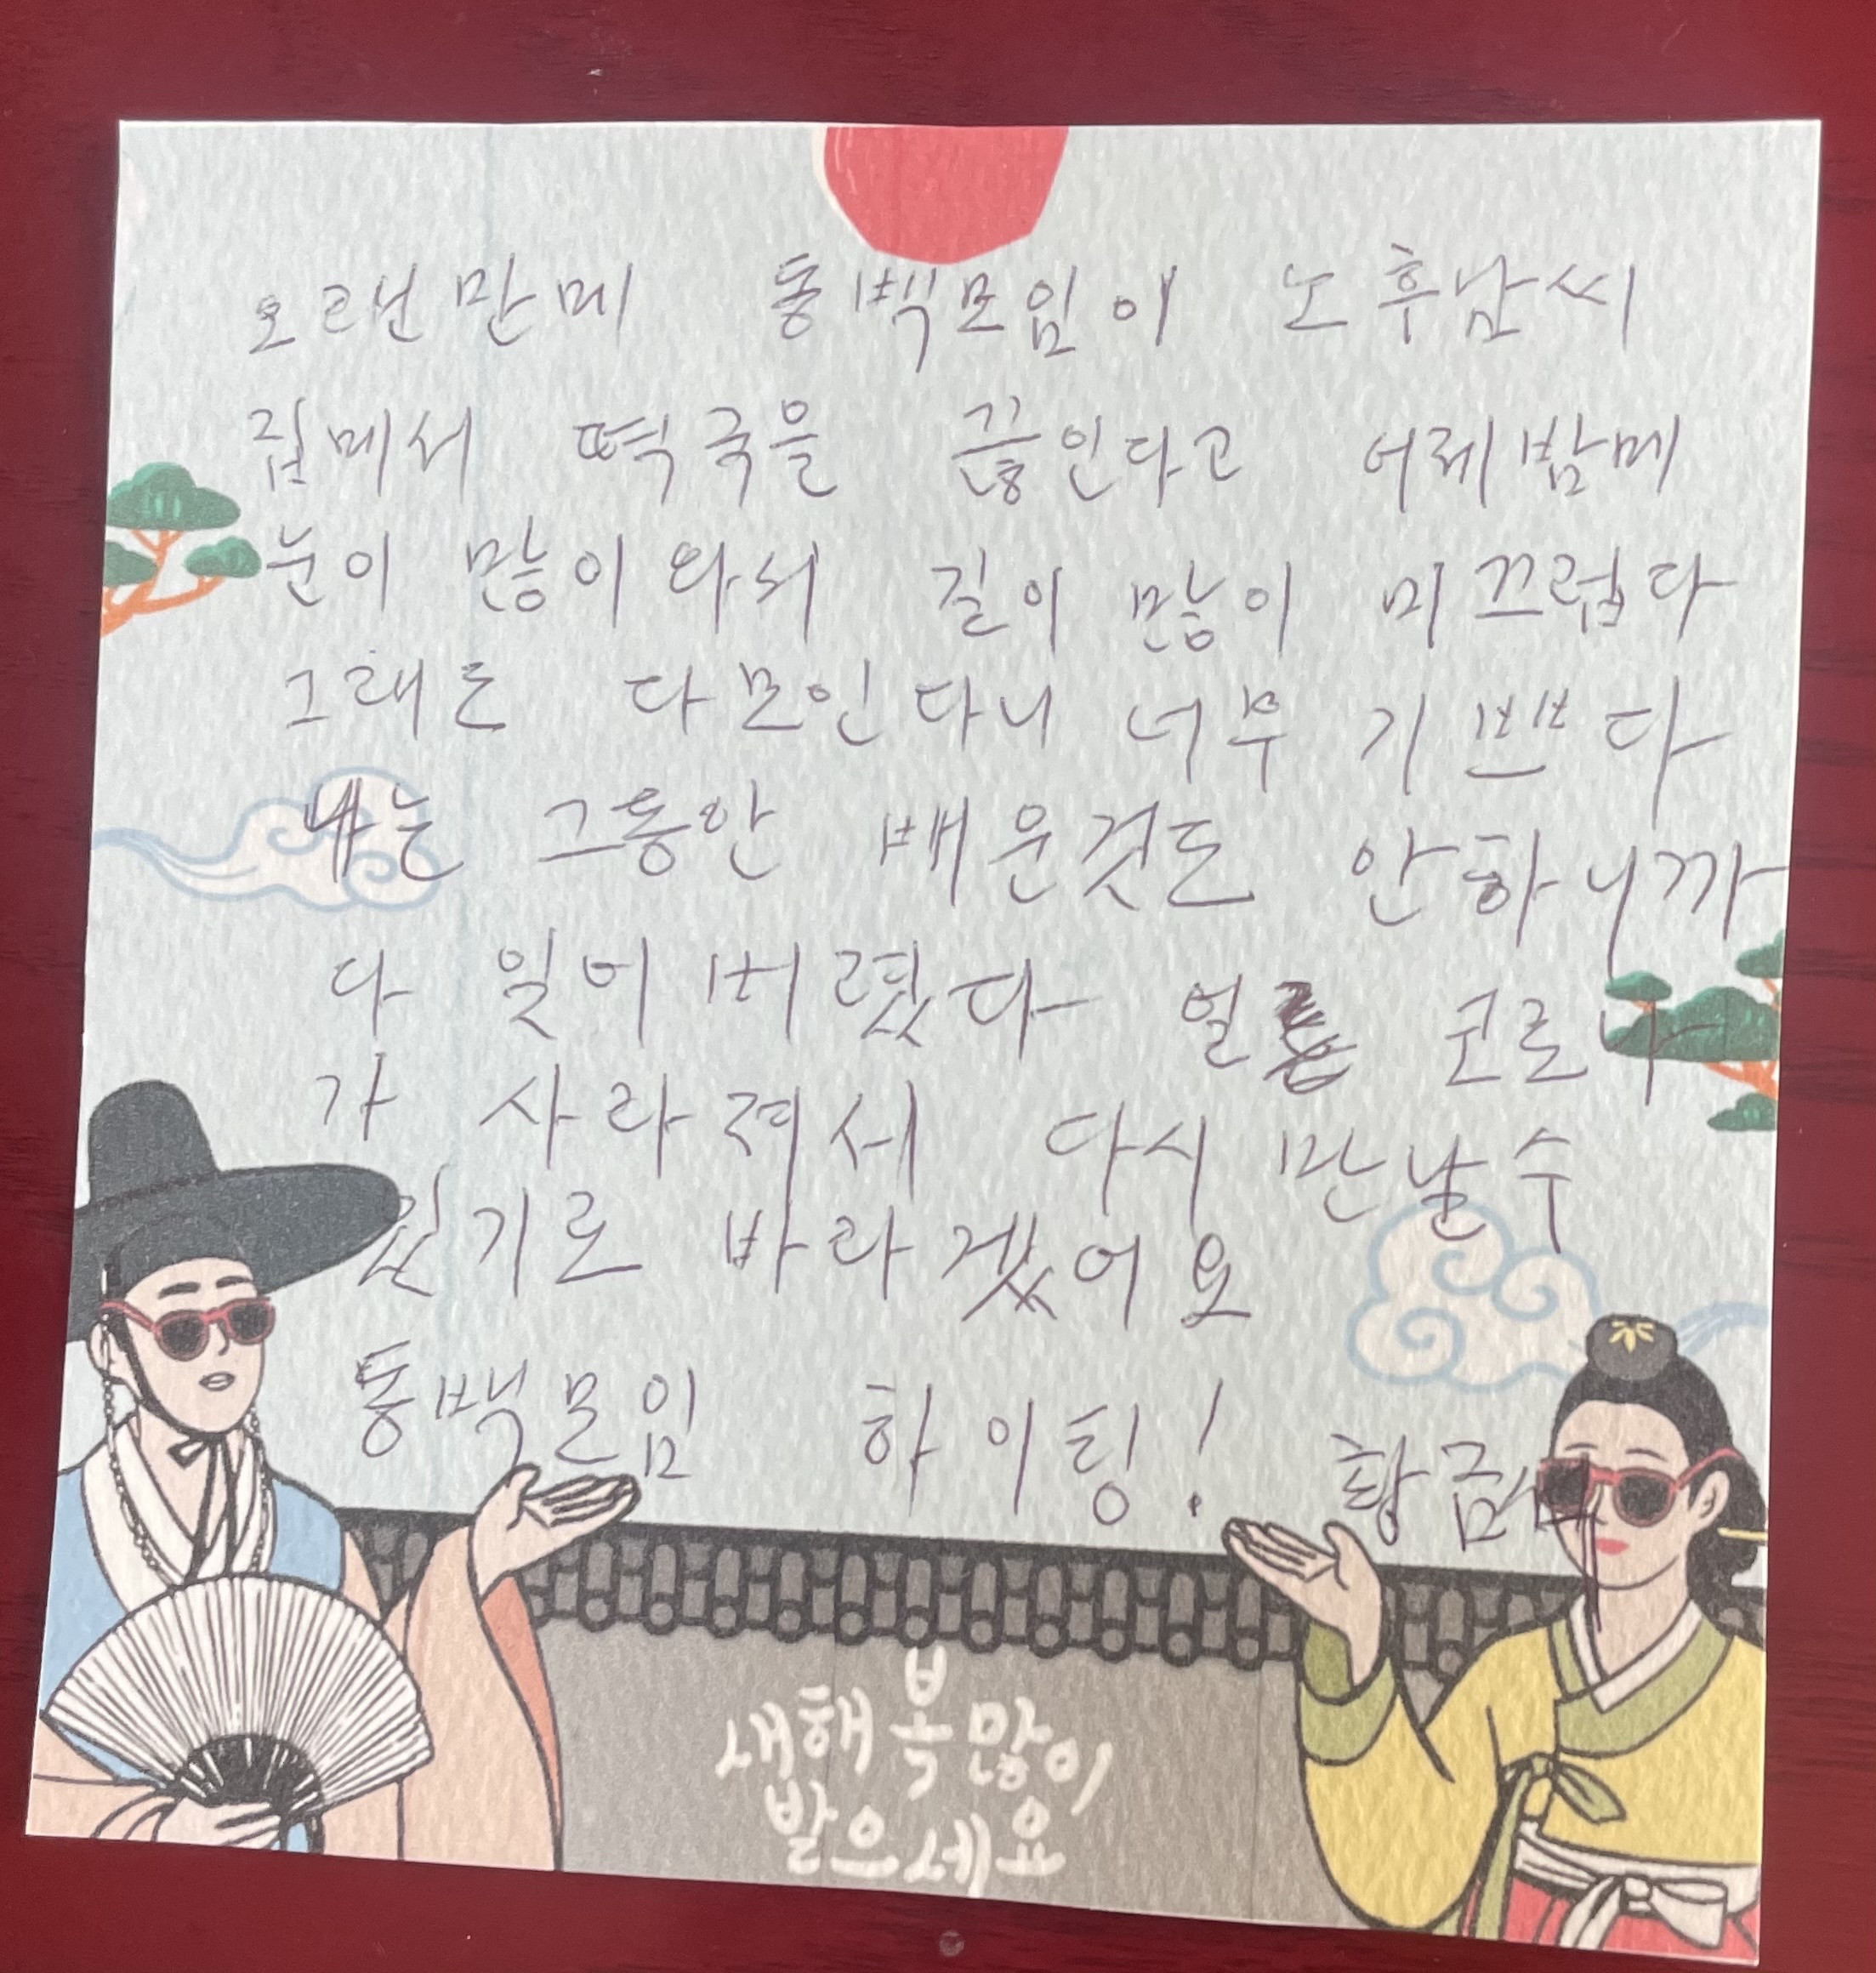 오랜만메 동백모임이 노후남씨
집메서 떡국을 끓인다고 어제밤메
눈이 많이 와서 길이 많이 미끄럽다
그래도 다 모인다니 너무 기쁘다
나는 그동안 배운것도 안하니까
다 잊어버렸다 얼 코로나
가 사라져서 다시 만날수
있기로 바라겠어요
동백모임 하이팅! 황금
새해 복 많이
받으세요